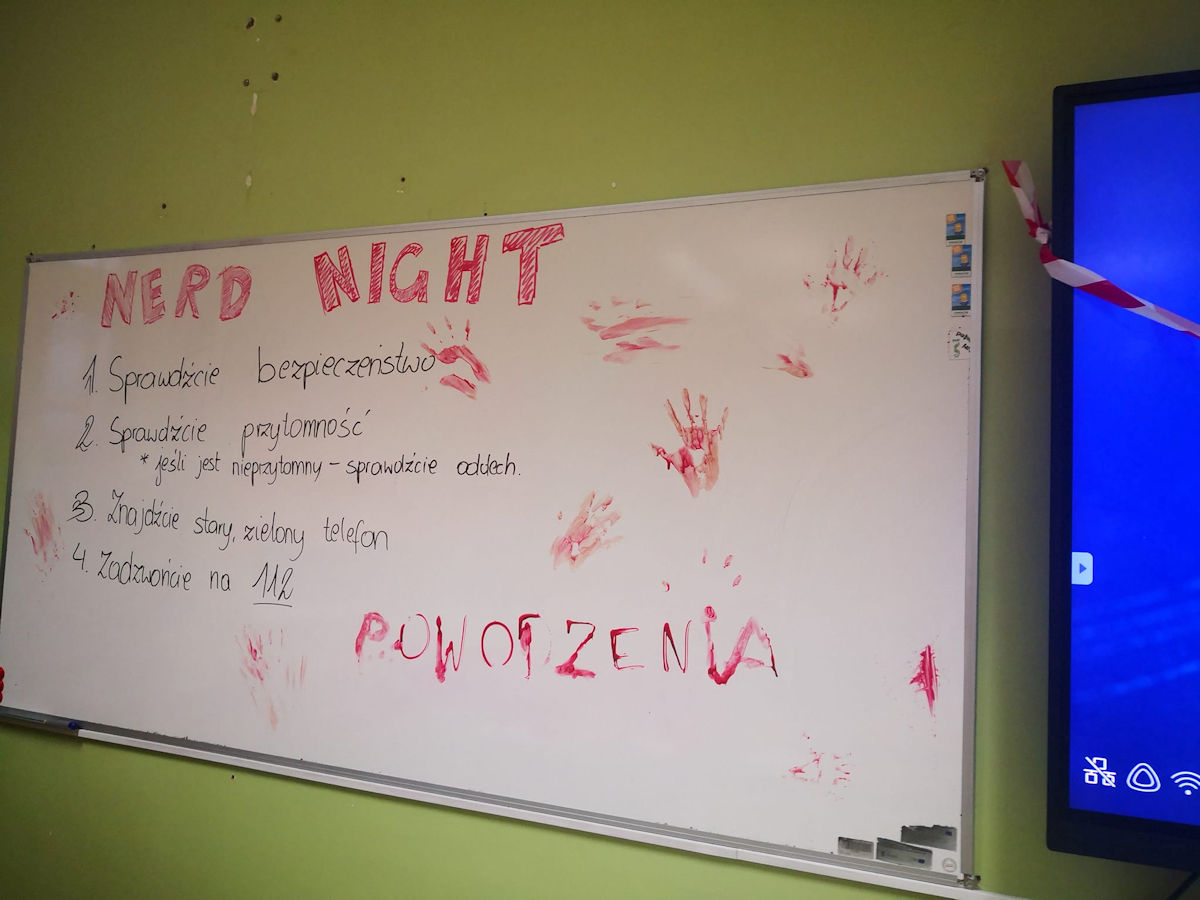 NERD NIGHT
1. Sprawdźcie bezpieczeństwo
2. Sprawdźcie przytomność
* jeśli jest nieprzytomny – sprawdźcie oddech.
3. Znajdźcie stary, zielony telefon
4. Zadzwońcie na 112
POWODZENIA